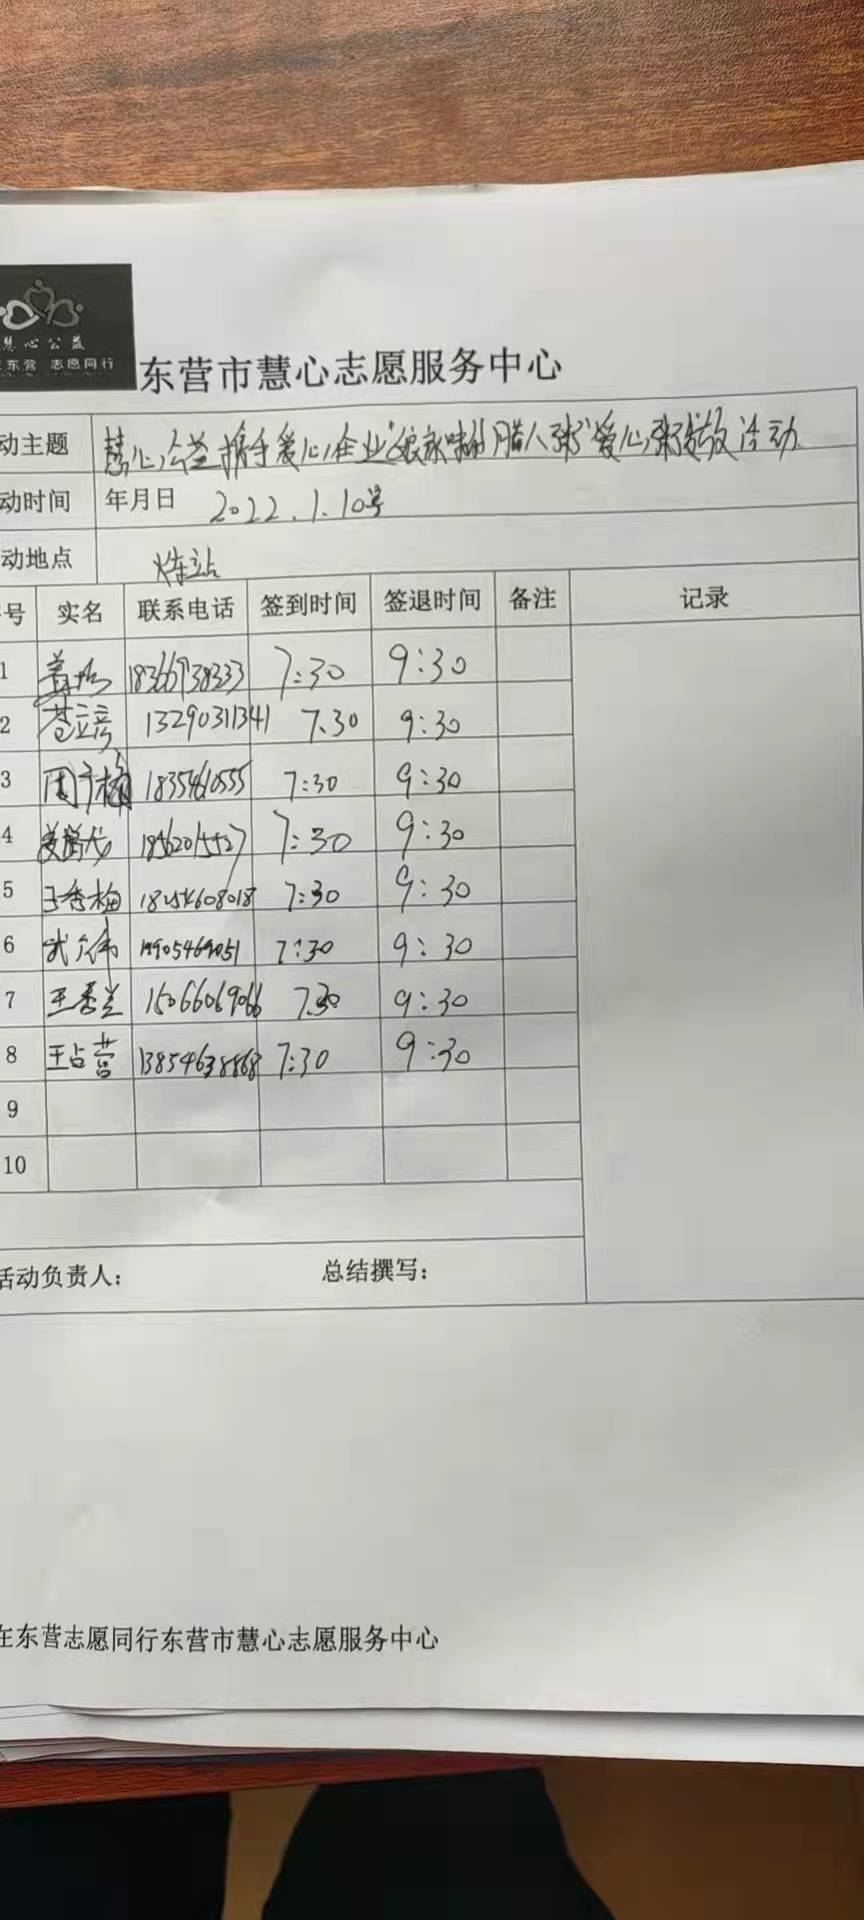 慧心公益
在东营 志愿同行
东营市慧心志愿服务中心
动主题 慧心公益携手爱心企业"娘家味的腊八粥"爱心粥发放活动
动时间 年月日 2022.1.10号
动地点 站
号 实名 联系电话 签到时间 签退时间 备注 记录
1 18366738333 7:30 9:30
2 13290311341 7.30 9:30
3 周 18354610555 7:30 9:30
4 18562015527 7:30 9:30
5 王秀梅 18254608018 7:30 9:30
6 武 19905469051 7:30 9:30
7 王秀兰 15066069066 7.30 9:30
8 王占营 13854638868 7:30 9:30
9
10
活动负责人: 总结撰写:
在东营志愿同行东营市慧心志愿服务中心